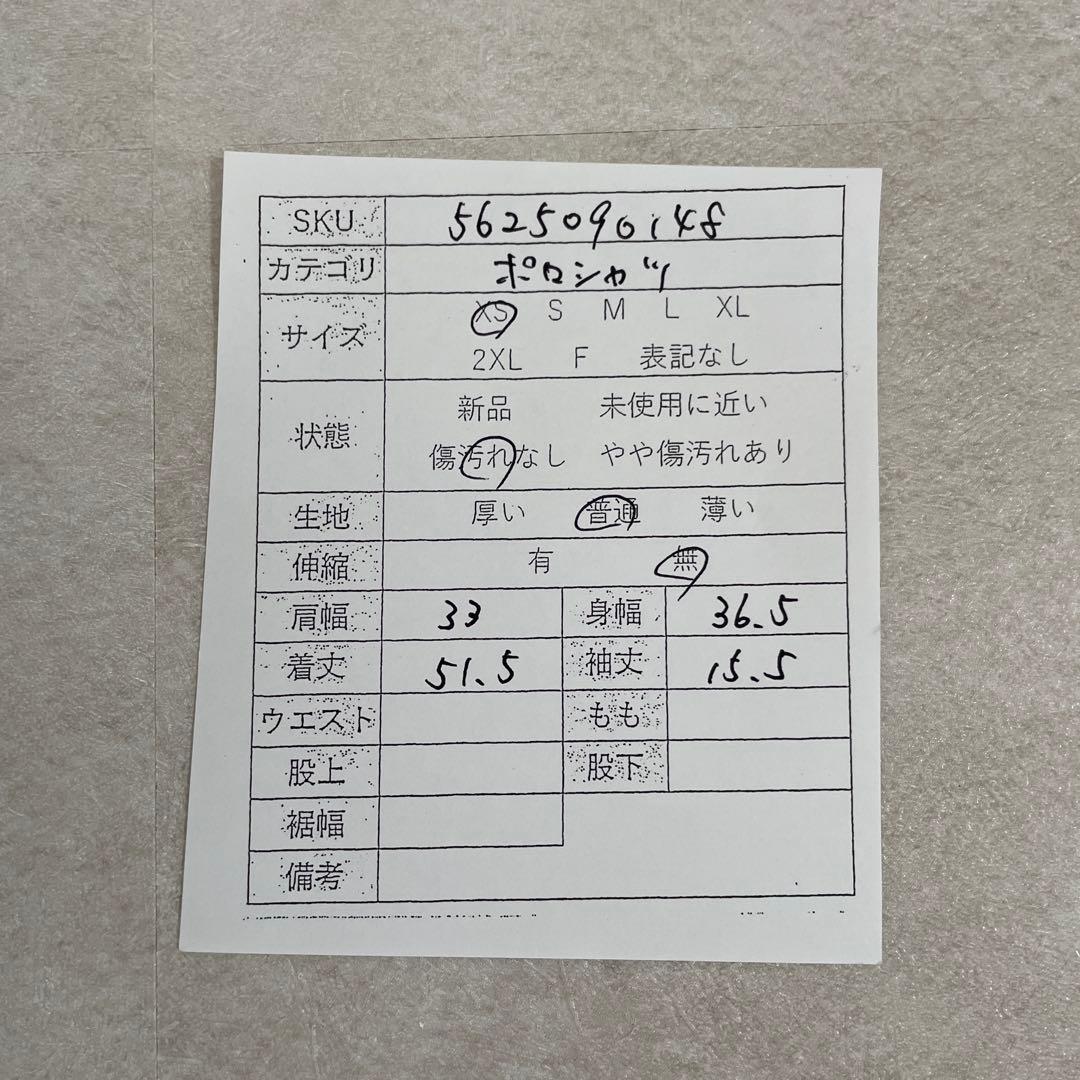 SKU 5625090148
カテゴリ ポロシャツ
サイズ XS S M L XL
2XL F 表記なし
状態 新品 未使用に近い
傷汚れなし やや傷汚れあり
生地 厚い 普通 薄い
伸縮 有 無
肩幅 33 身幅 36.5
着丈 51.5 袖丈 15.5
ウエスト もも
股上 股下
裾幅
備考